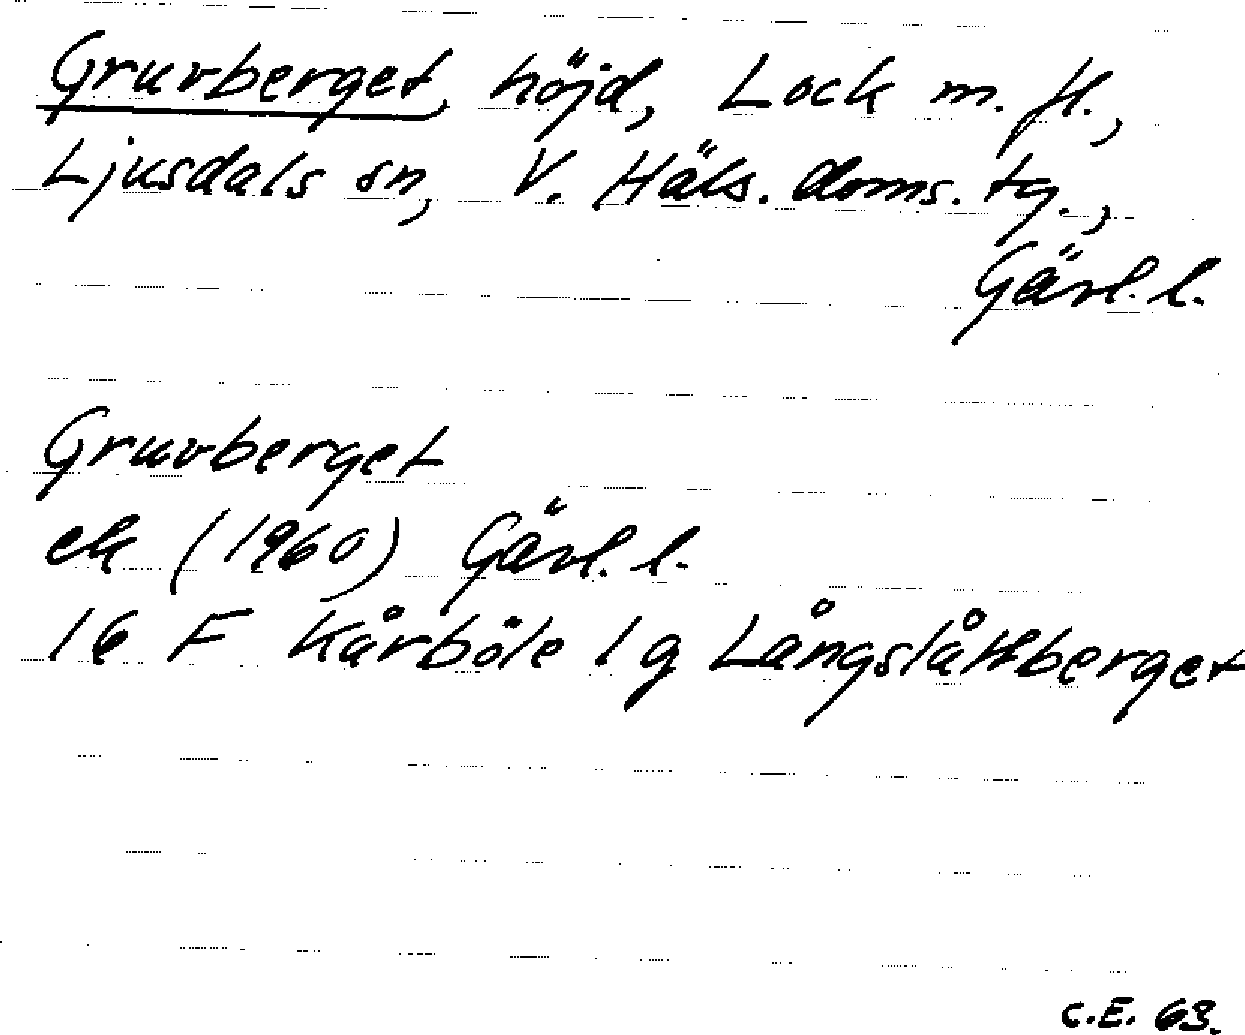 Gruvberget, höjd, Lock m. fl.,
Ljusdals sn, V. Häls. doms. tg.,
Gävl. l.
Gruvberget
ek (1960) Gävl. l.
16 F Kårböle 1 g Långslåttberget
C.E. 63.